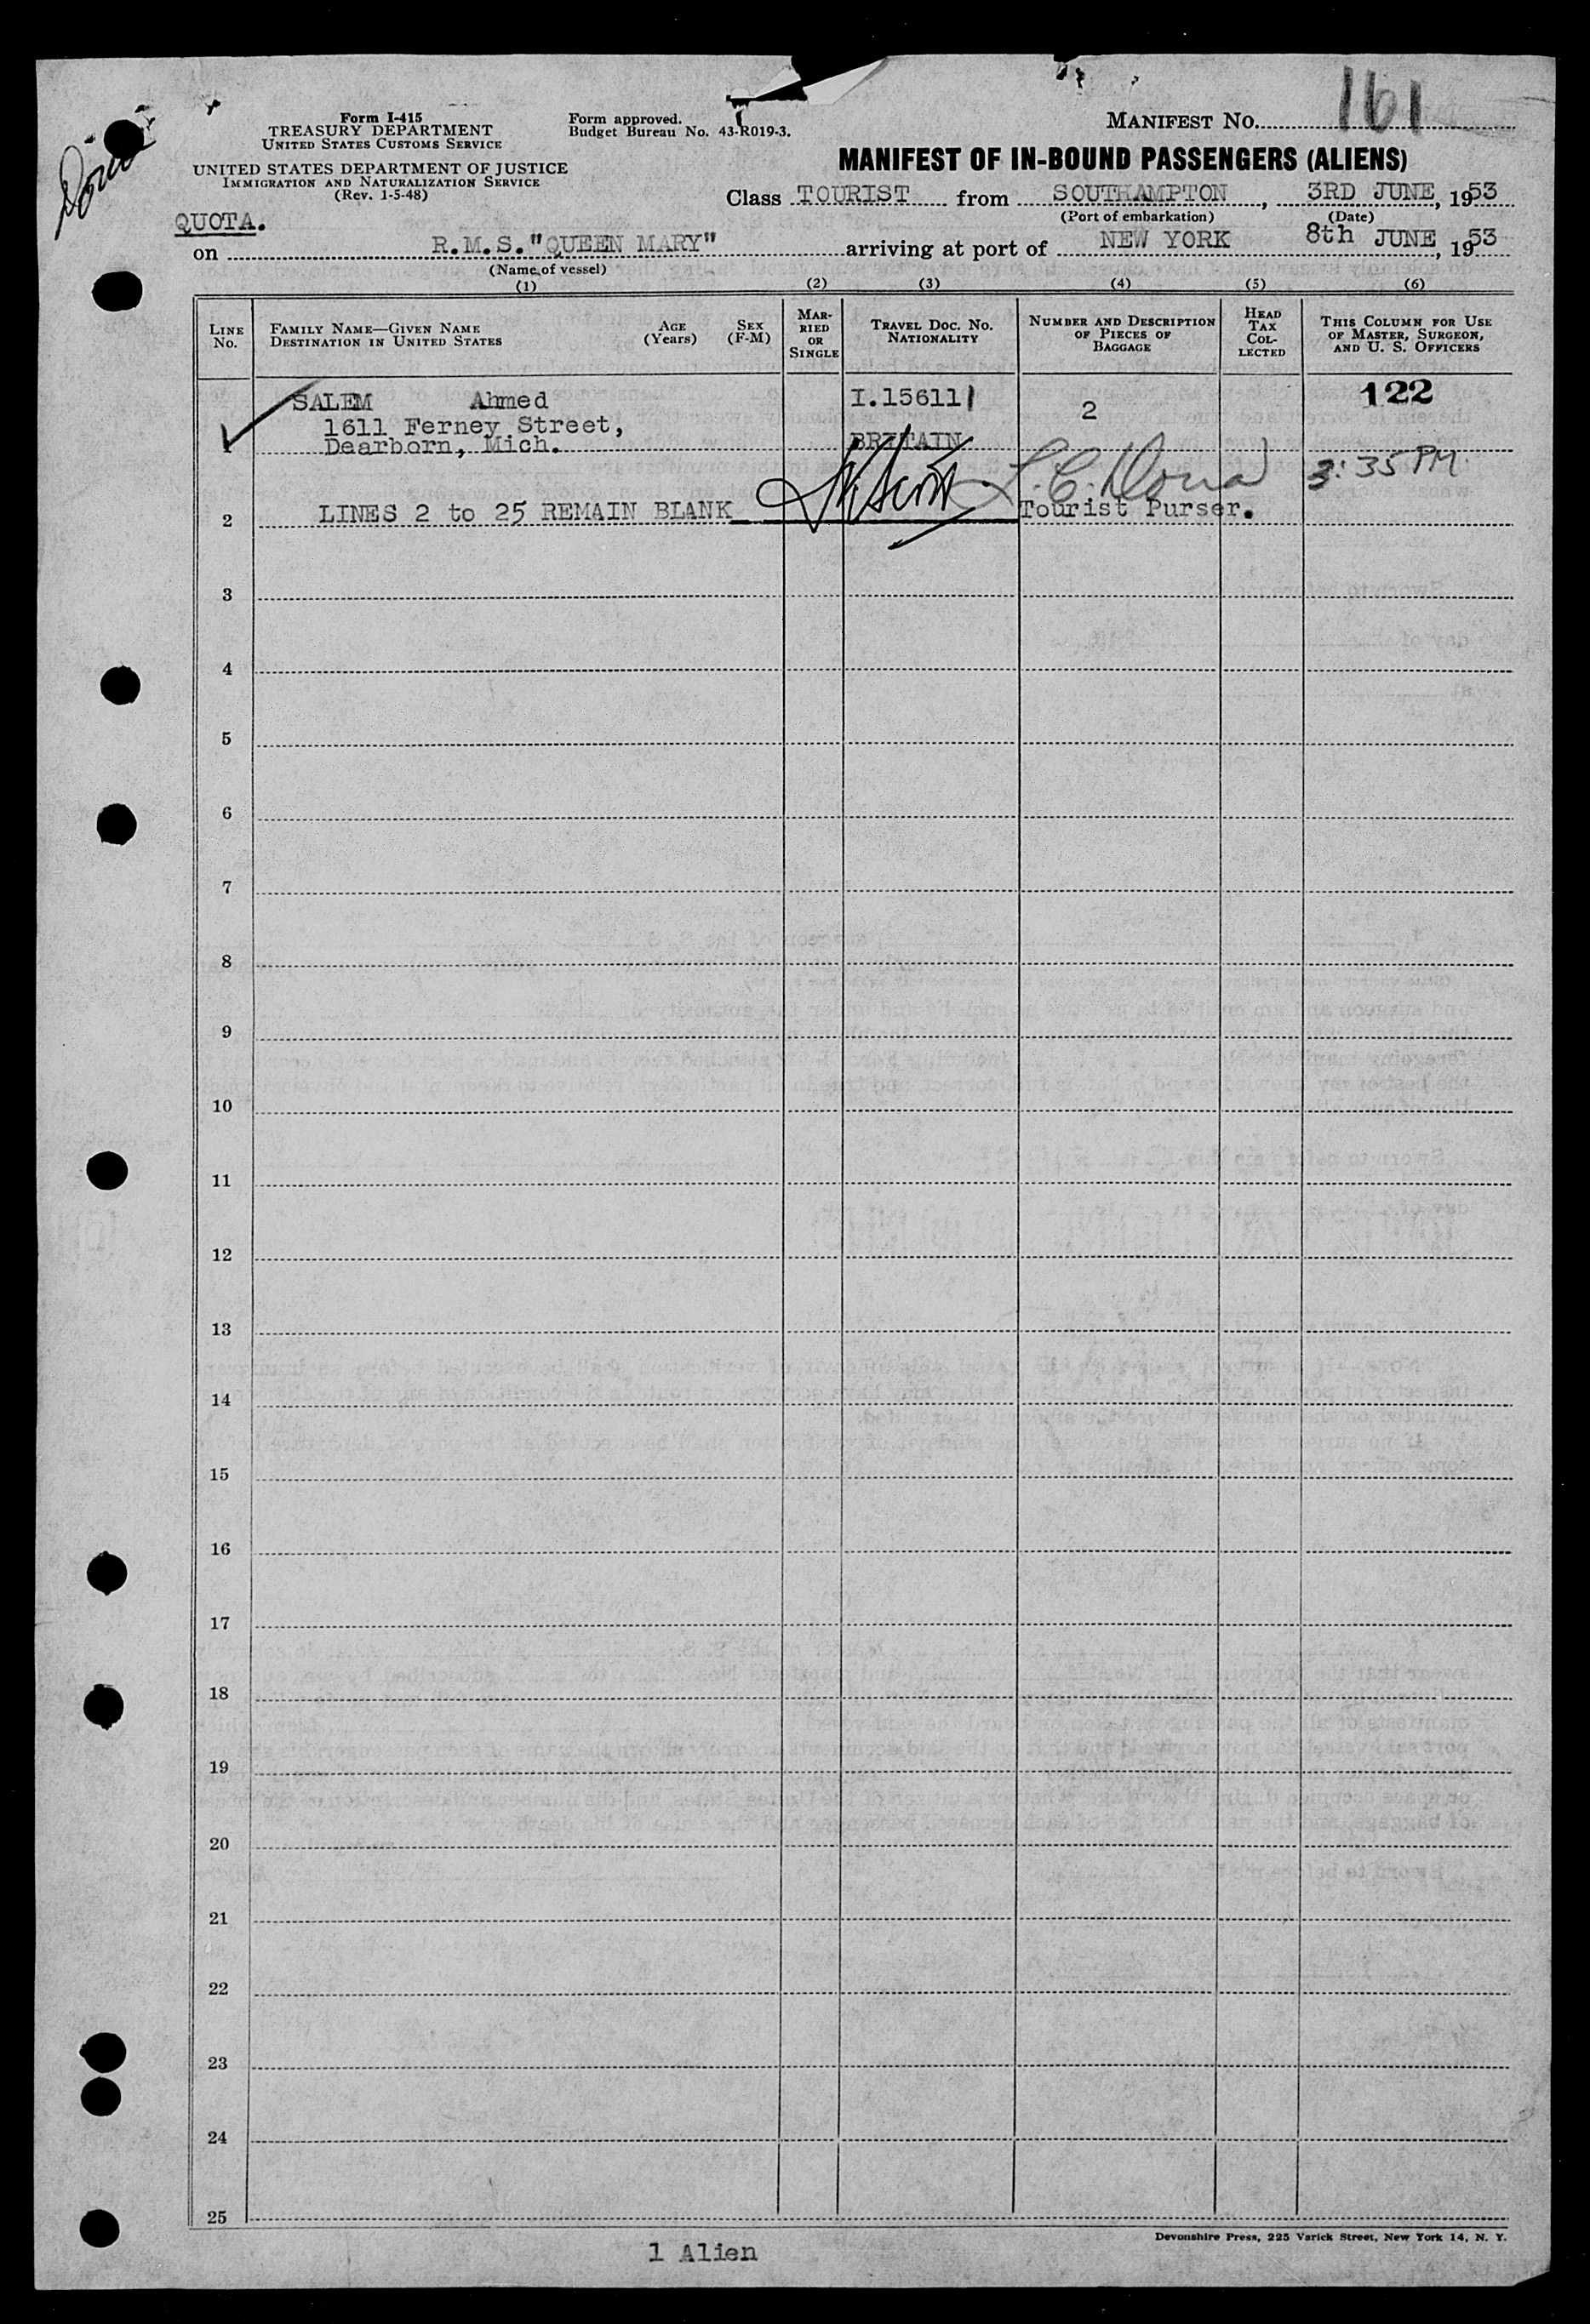 Form I-415
TREASURY DEPARTMENT
UNITED STATES CUSTOMS SERVICE
UNITED STATES DEPARTMENT OF JUSTICE
IMMIGRATION AND NATURALIZATION SERVICE
(Rev. 1-5-48)
Form approved.
Budget Bureau No. 43-R019-3.
MANIFEST NO. 161
MANIFEST OF IN-BOUND PASSENGERS (ALIENS)
Class TOURIST from SOUTHAMPTON, 3RD JUNE, 1953
(Port of embarkation) (Date)
QUOTA.
on R.M.S."QUEEN MARY" arriving at port of NEW YORK 8th JUNE, 1953
(Name of vessel)
(1) (2) (3) (4) (5) (6)
LINE NO.
FAMILY NAME—GIVEN NAME
DESTINATION IN UNITED STATES
AGE (Years)
SEX (F-M)
MARRIED OR SINGLE
TRAVEL DOC. NO.
NATIONALITY
NUMBER AND DESCRIPTION OF PIECES OF BAGGAGE
HEAD TAX COLLECTED
THIS COLUMN FOR USE OF MASTER, SURGEON, AND U. S. OFFICERS
SALEM Ahmed I.156111 2 122
1611 Ferney Street,
1 Dearborn, Mich. BRITAIN 3:35 PM.
2 LINES 2 to 25 REMAIN BLANK Tourist Purser.
3
4
5
6
7
8
9
10
11
12
13
14
15
16
17
18
19
20
21
22
23
24
25
Devonshire Press, 225 Varick Street, New York 14, N. Y.
1 Alien